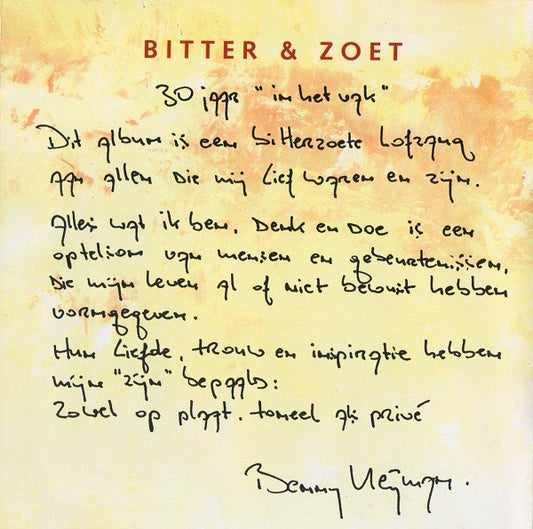 BITTER & ZOET
30 jaar "in het vak"
Dit album is een bitterzoete Lofzang
aan allen die mij Lief waren en zijn.
Alles wat ik ben, Denk en Doe is een
optelsom van mensen en gebeurtenissen,
die mijn leven al of niet bewust hebben
vormgegeven.
Hun Liefde, trouw en inspiratie hebben
mijn "zijn" bepaald:
Zowel op plaat, toneel als privé
Benny Neyman.